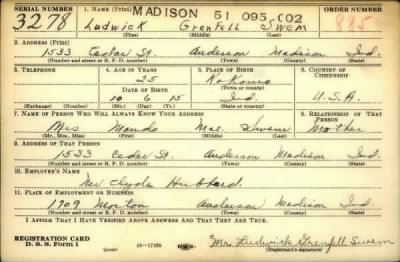 SERIAL NUMBER 1. NAME (Print) MADISON 51 095-C02 ORDER NUMBER
3278 Ludwick Grenfell Swem 885
(First) (Middle) (Last)
2. ADDRESS (Print)
1533 Cedar St. Anderson Madison Ind.
(Number and street or R. F. D. number) (Town) (County) (State)
3. TELEPHONE 4. AGE IN YEARS 5. PLACE OF BIRTH 6. COUNTRY OF CITIZENSHIP
25 Kokomo
(Town or county)
DATE OF BIRTH
10 6 15 Ind. U.S.A.
(Exchange) (Number) (Mo.) (Day) (Yr.) (State or country)
7. NAME OF PERSON WHO WILL ALWAYS KNOW YOUR ADDRESS 8. RELATIONSHIP OF THAT PERSON
Mrs Maude Mae Swem Mother
(Mr., Mrs., Miss) (First) (Middle) (Last)
9. ADDRESS OF THAT PERSON
1533 Cedar St. Anderson Madison Ind.
(Number and street or R. F. D. number) (Town) (County) (State)
10. EMPLOYER'S NAME
Mr Clyde Hubbard.
11. PLACE OF EMPLOYMENT OR BUSINESS
1709 Morton Anderson Madison Ind.
(Number and street or R. F. D. number) (Town) (County) (State)
I AFFIRM THAT I HAVE VERIFIED ABOVE ANSWERS AND THAT THEY ARE TRUE.
REGISTRATION CARD
D. S. S. Form 1 (over) 16—17105 Mr. Ludwick Grenfell Swem
(Registrant's signature)